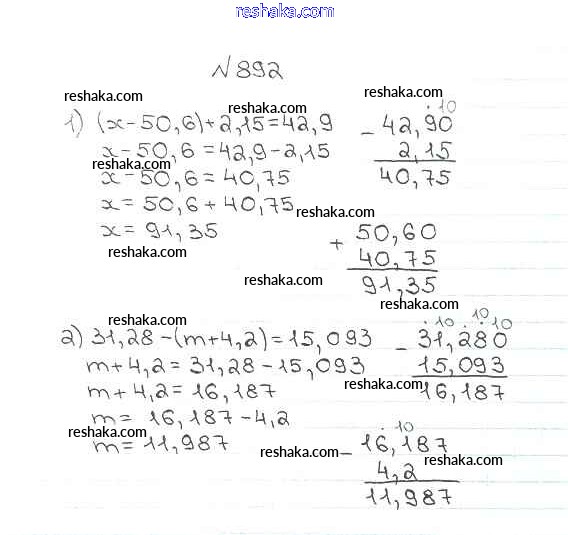 reshaka.com
№892
reshaka.com
reshaka.com
reshaka.com
1) (x-50,6)+2,15=42,9
x-50,6=42,9-2,15
reshaka.com
x-50,6=40,75
x=50,6+40,75
x=91,35
reshaka.com
. 10
- 42,90
2,15
40,75
reshaka.com
+ 50,60
40,75
91,35
reshaka.com
reshaka.com
reshaka.com
2) 31,28-(m+4,2)=15,093
m+4,2=31,28-15,093
m+4,2=16,187
m=16,187-4,2
reshaka.com
m=11,987
. 10 . 10 . 10
- 31,280
15,093
16,187
reshaka.com
reshaka.com
. 10
- 16,187
4,2
11,987
reshaka.com